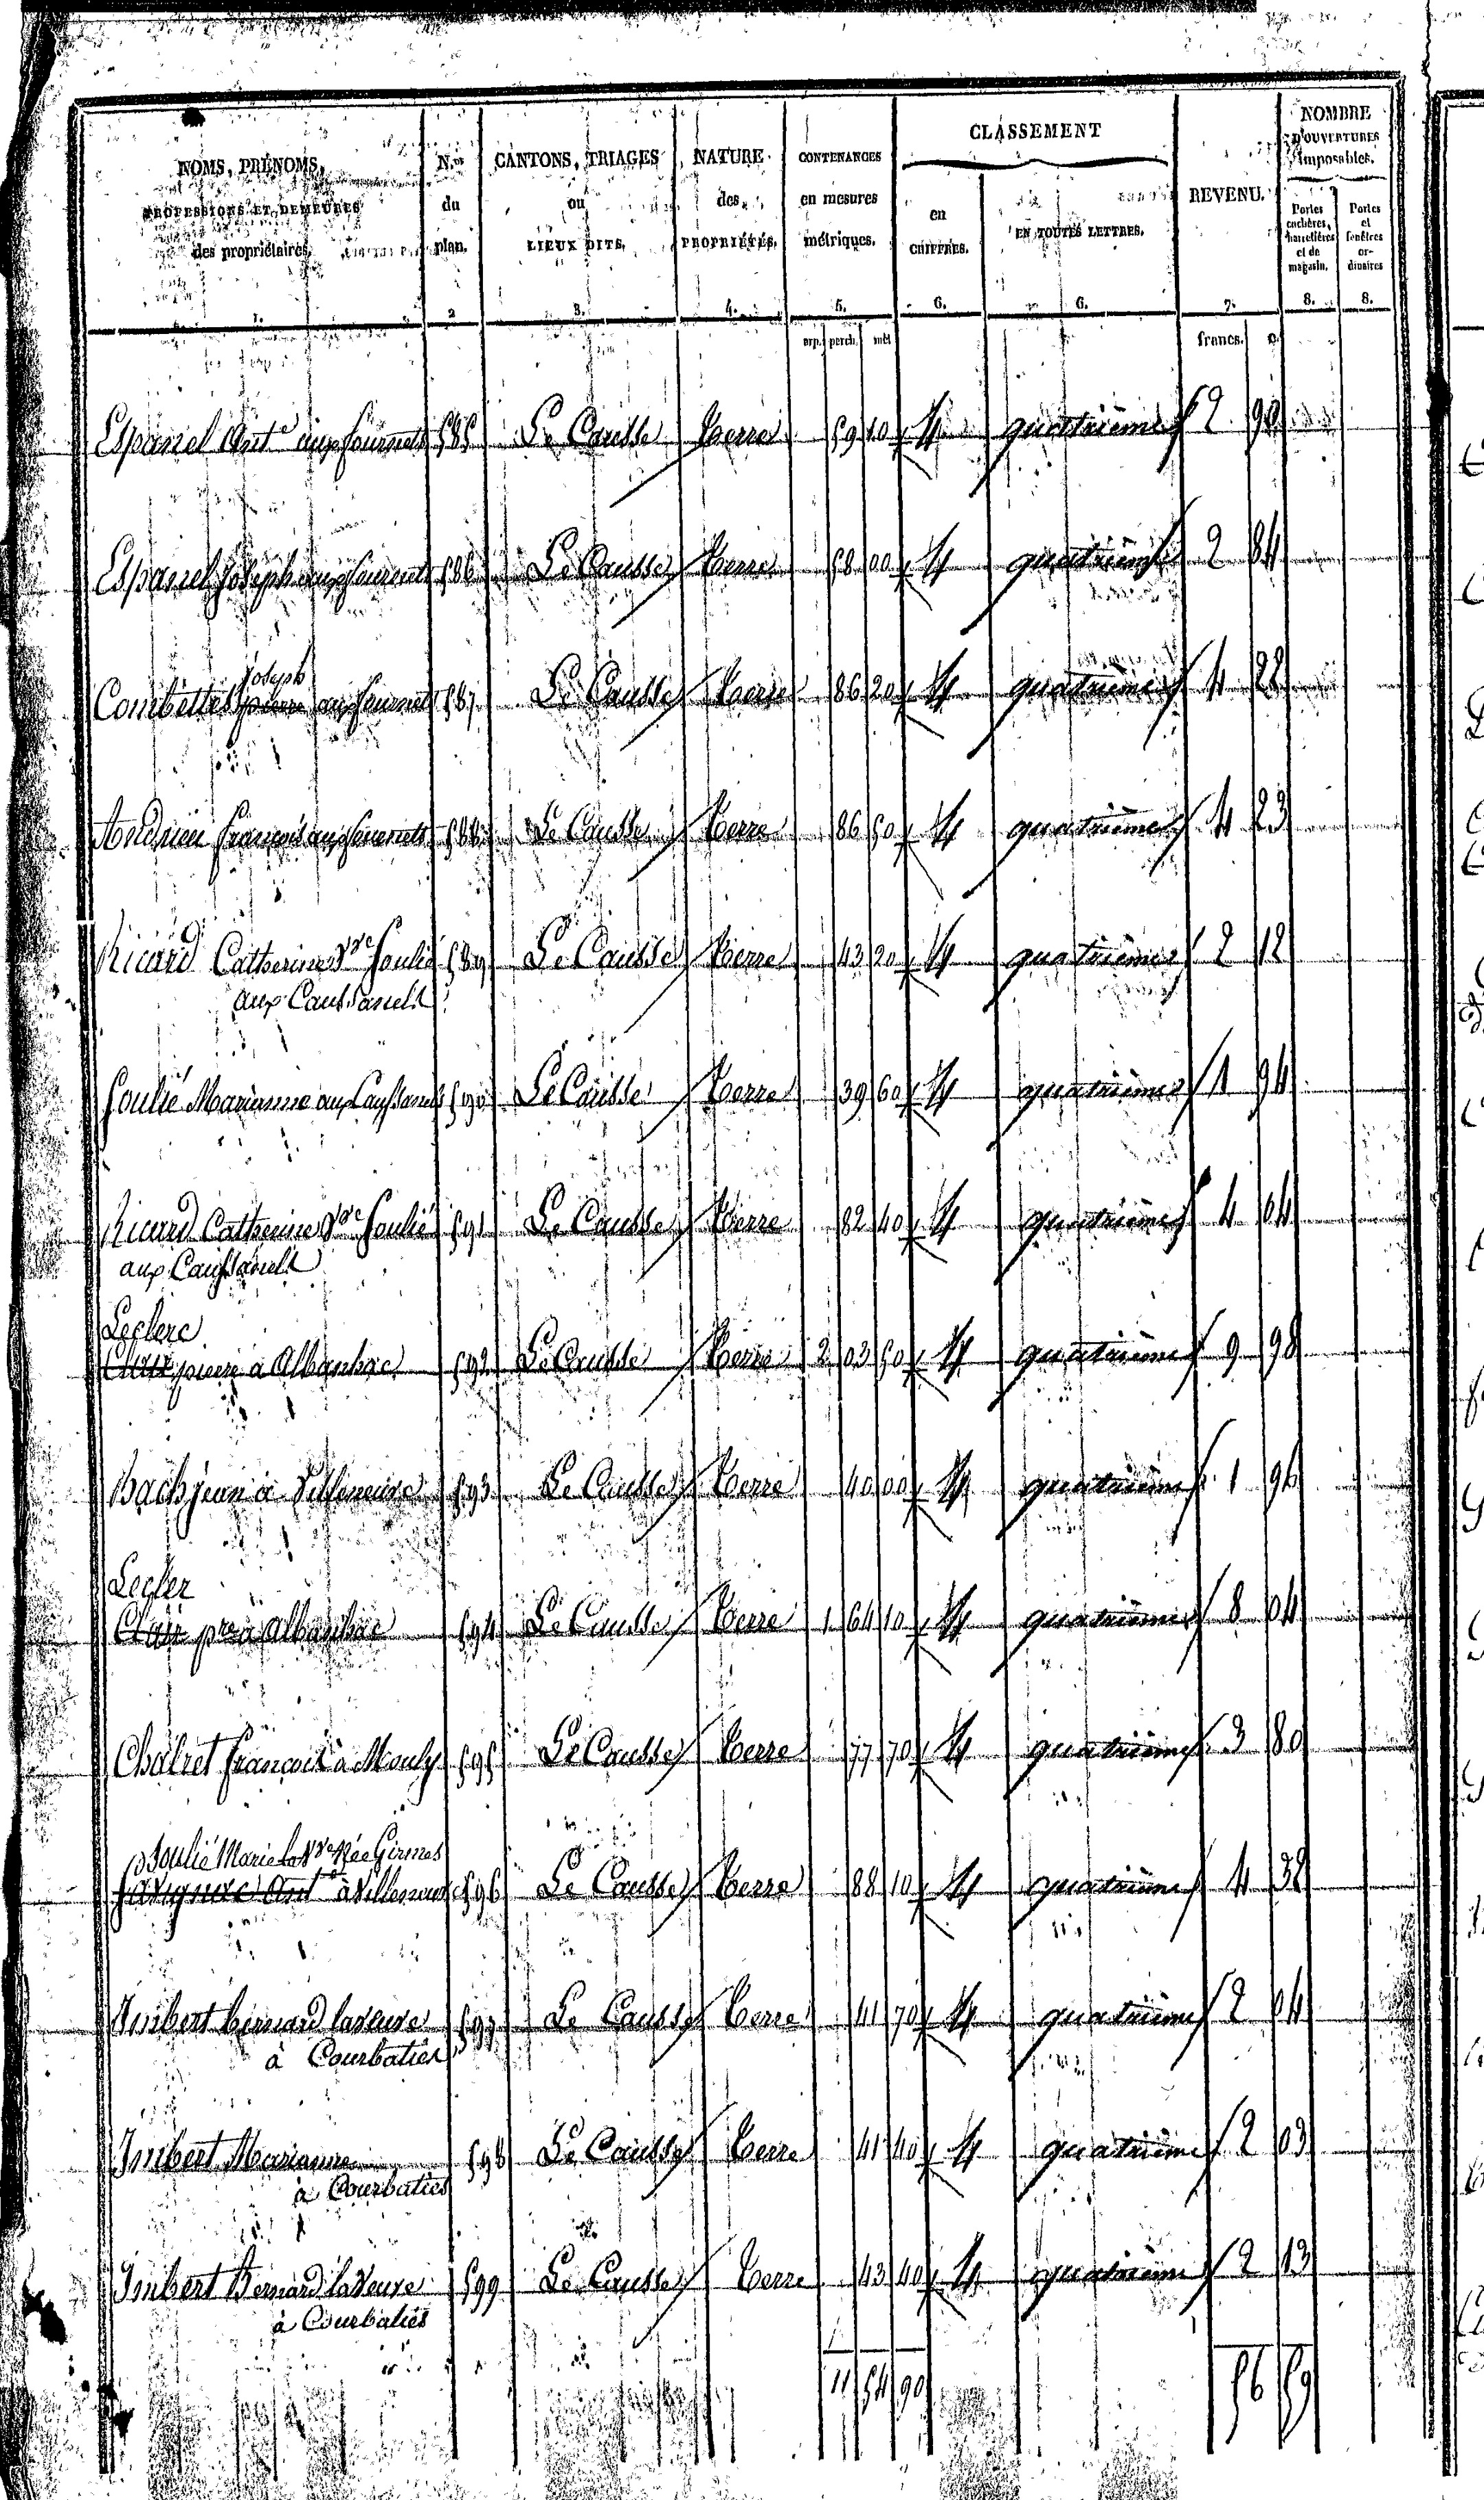 NOMS, PRÉNOMS, PROFESSIONS ET DEMEURES des propriétaires.
N.os du plan.
CANTONS, TRIAGES ou LIEUX DITS.
NATURE des PROPRIÉTÉS.
CONTENANCES en mesures métriques.
CLASSEMENT
en CHIFFRES.
EN TOUTES LETTRES.
REVENU.
NOMBRE D'OUVERTURES imposables.
Portes cochères, charretières et de magasin.
Portes et fenêtres ordinaires
1. 2 3. 4. 5. 6. 6. 7. 8. 8.
arp. perch. mèt francs. c.
Espanel Ant.e aux fournets 585 Le Causse terre 59 10 4 quatrième 2 90
Espanel Joseph aux fournets 586 Le Causse terre 58 00 4 quatrième 2 84
Joseph
Combettes pierre aux fournets 587 Le Causse terre 86 20 4 quatrième 4 22
Andrieu françois aux fournets 588 Le Causse terre 86 50 4 quatrième 4 23
Ricard Catherine Vve Soulié 589 Le Causse terre 43 20 4 quatrième 2 12
aux Caussanels
Soulié Marianne aux Caussanels 590 Le Causse terre 39 60 4 quatrième 1 94
Ricard Catherine Vve Soulié 591 Le Causse terre 82 40 4 quatrième 4 04
aux Caussanels
Leclerc
pierre à Albanhac 592 Le Causse terre 2 03 50 4 quatrième 9 98
Bach jean à Villeneuve 593 Le Causse terre 40 00 4 quatrième 1 96
Lecler
Clair pre à Albanhac 594 Le Causse terre 1 64 10 4 quatrième 8 04
Chalret françois à Mouly 595 Le Causse terre 77 70 4 quatrième 3 80
Soulié Marie la Vve Née Girmes
Ant.e à Villeneuve 596 Le Causse terre 88 10 4 quatrième 4 32
Imbert bernard laveuve 597 Le Causse terre 41 70 4 quatrième 2 04
à Courbaties
Imbert Marianne 598 Le Causse terre 41 40 4 quatrième 2 03
à Courbaties
Imbert Bernard laveuve 599 Le Causse terre 43 40 4 quatrième 2 13
à Courbaties
11 54 90 56 59